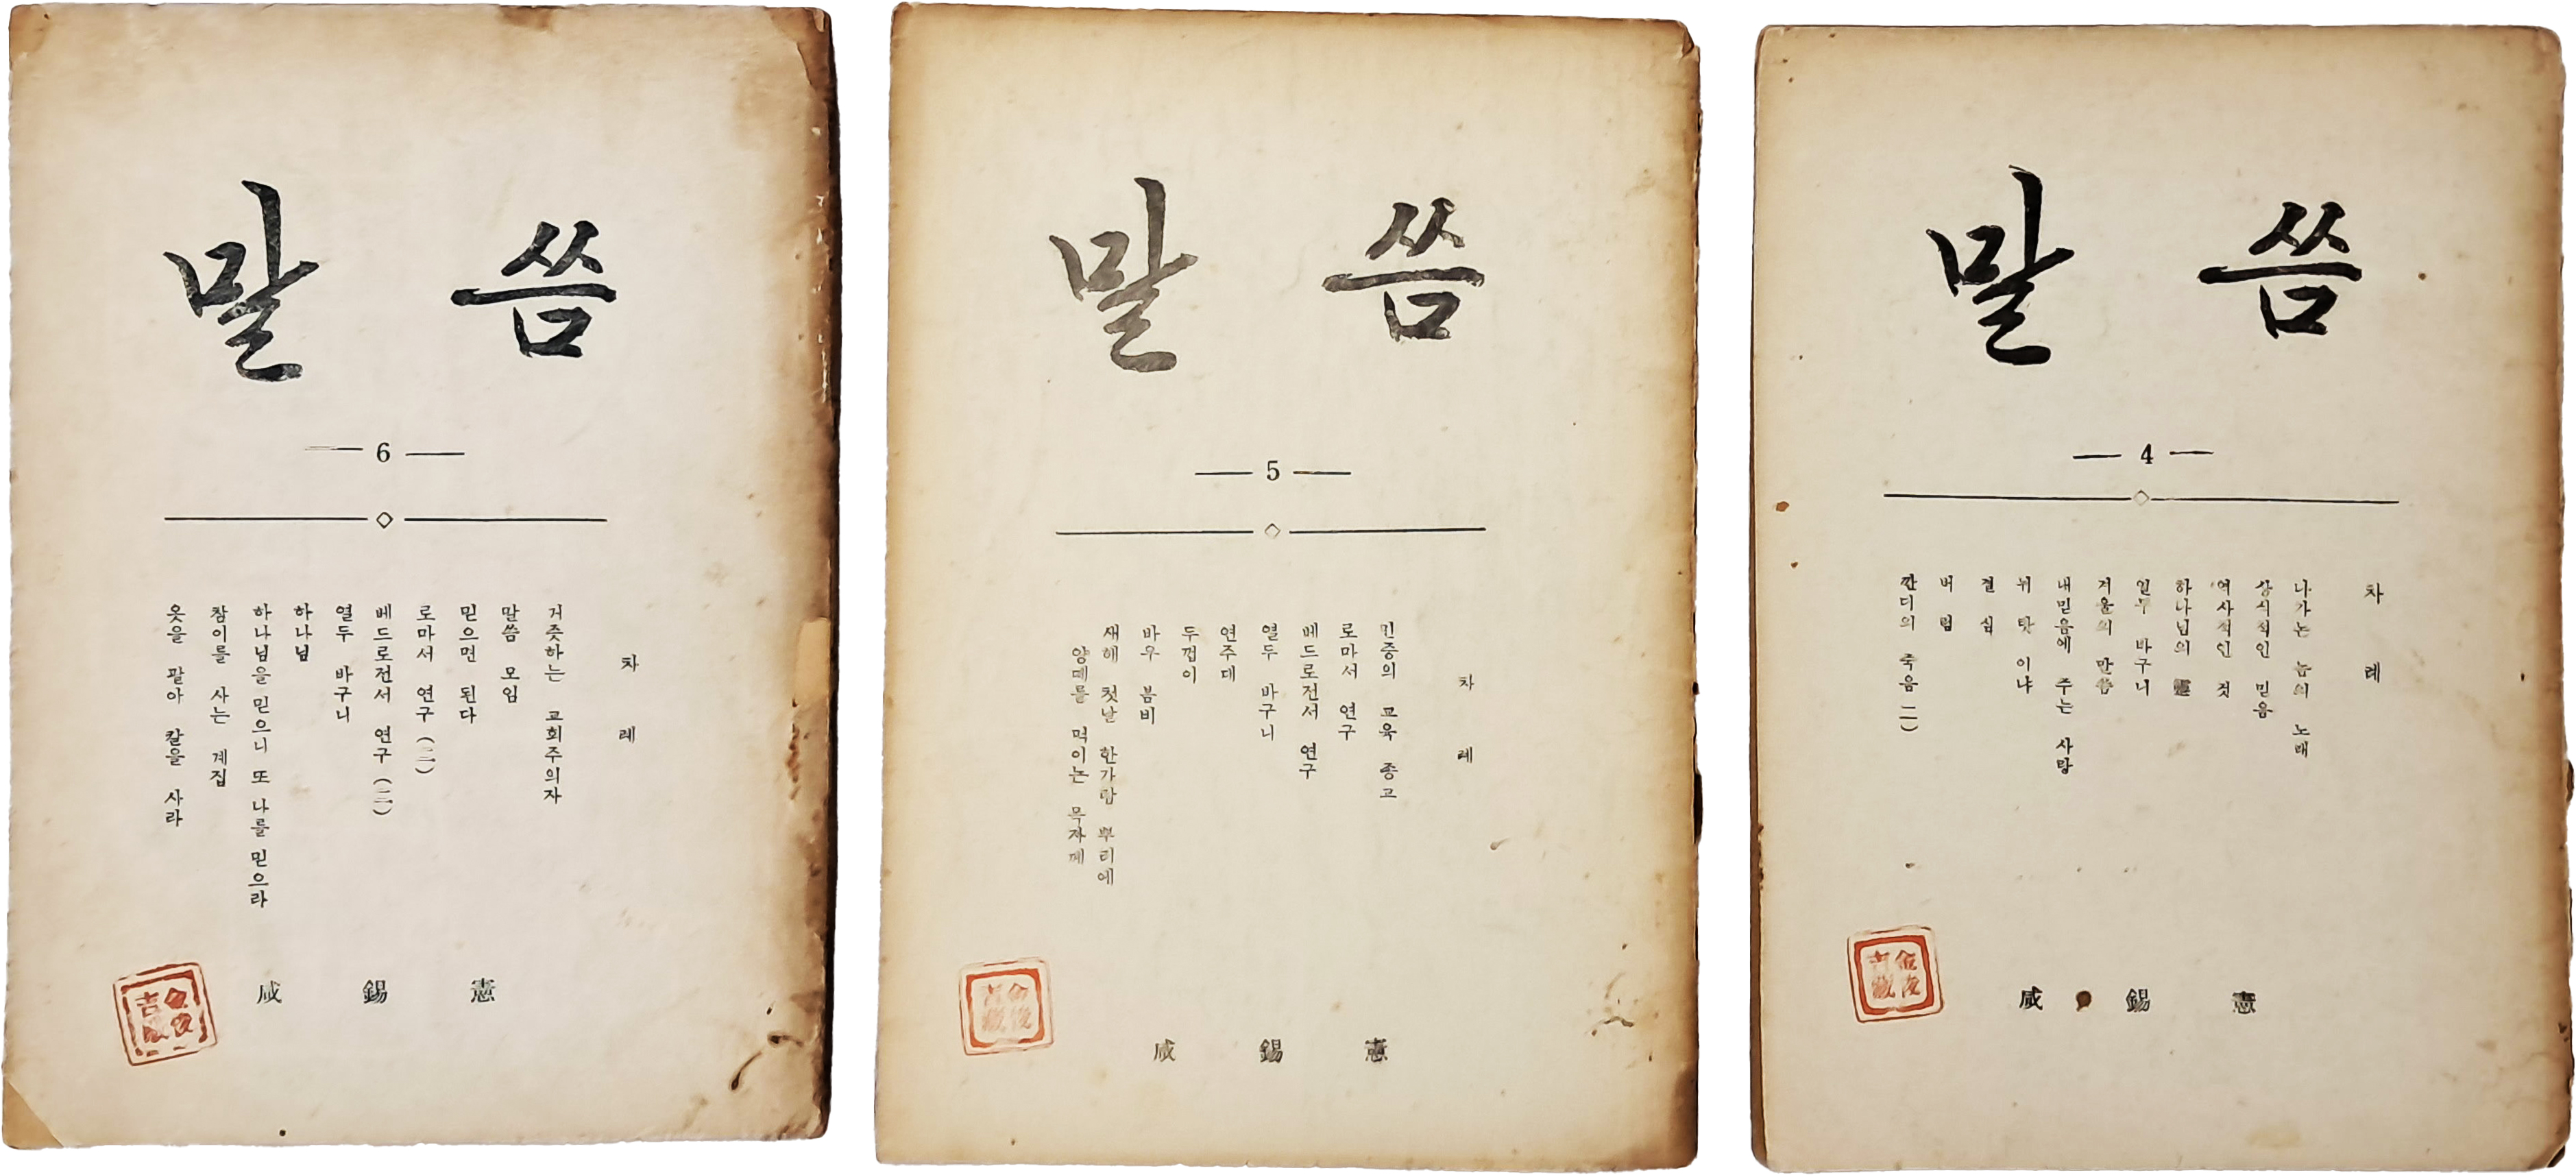 말씀
6
차례
거즛하는 교회주의자
말씀 모임
믿으면 된다
로마서 연구 (二)
베드로전서 연구 (二)
열두 바구니
하나님
하나님을 믿으니 또 나를 믿으라
참이를 사는 계집
옷을 팔아 칼을 사라
咸錫憲
말씀
5
차례
민중의 교육 종교
로마서 연구
베드로전서 연구
열두 바구니
연주대
두껍이
바우 봄비
새해 첫날 한가람 뿌리에
양떼를 먹이는 목자께
咸錫憲
金俊吉藏
말씀
4
차례
나가는 놈의 노래
상식적인 믿음
역사적인 것
하나님의 靈
열두 바구니
겨울의 말씀
내믿음에 주는 사랑
뉘 탓 이냐
결심
버림
깐디의 죽음 (二)
咸錫憲
金俊吉藏